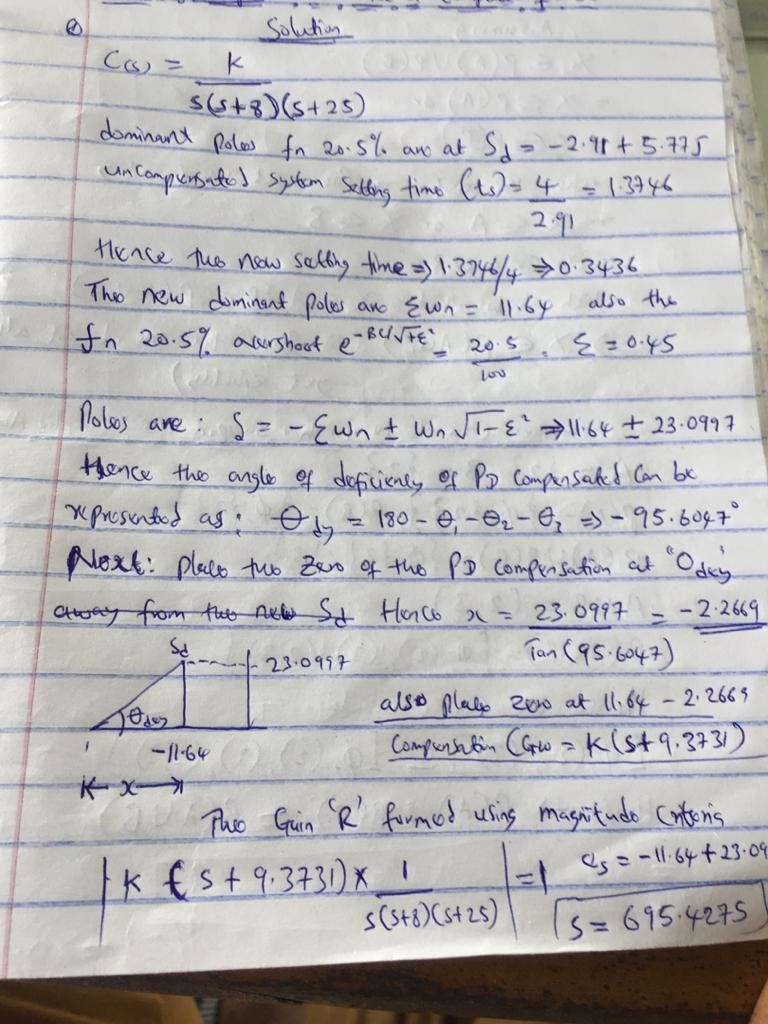 Solution
C(s) = K
s(s+8)(s+25)
dominant Poles fn 20.5% are at Sd = -2.91 + 5.775
uncompensated system Settling time (ts) = 4/2.91 = 1.3746
Hence the new settling time ⇒ 1.3746/4 ⇒ 0.3436
The new dominant poles are ξωn = 11.64 also the
fn 20.5% overshoot e = 20.5/100 . ξ = 0.45
Poles are: S = - ξωn ± ωn √1-ξ² ⇒ 11.64 ± 23.0997
Hence the angle of deficiency of PD Compensated Can be
represented as: θ = 180 - θ1 - θ2 - θ3 ⇒ - 95.6047°
Next: place the Zero of the PD compensation at
away from the new Sd Hence x = 23.0997/Tan(95.6047) = -2.2669
Sd
23.0997
also place zero at 11.64 - 2.2669
-11.64
Compensation = K(S+9.3731)
x
The Gain 'R' formed using magnitude Criteria
| K (s + 9.3731) × 1/s(s+8)(s+25) | = 1
= -11.64 + 23.09
S = 695.4275